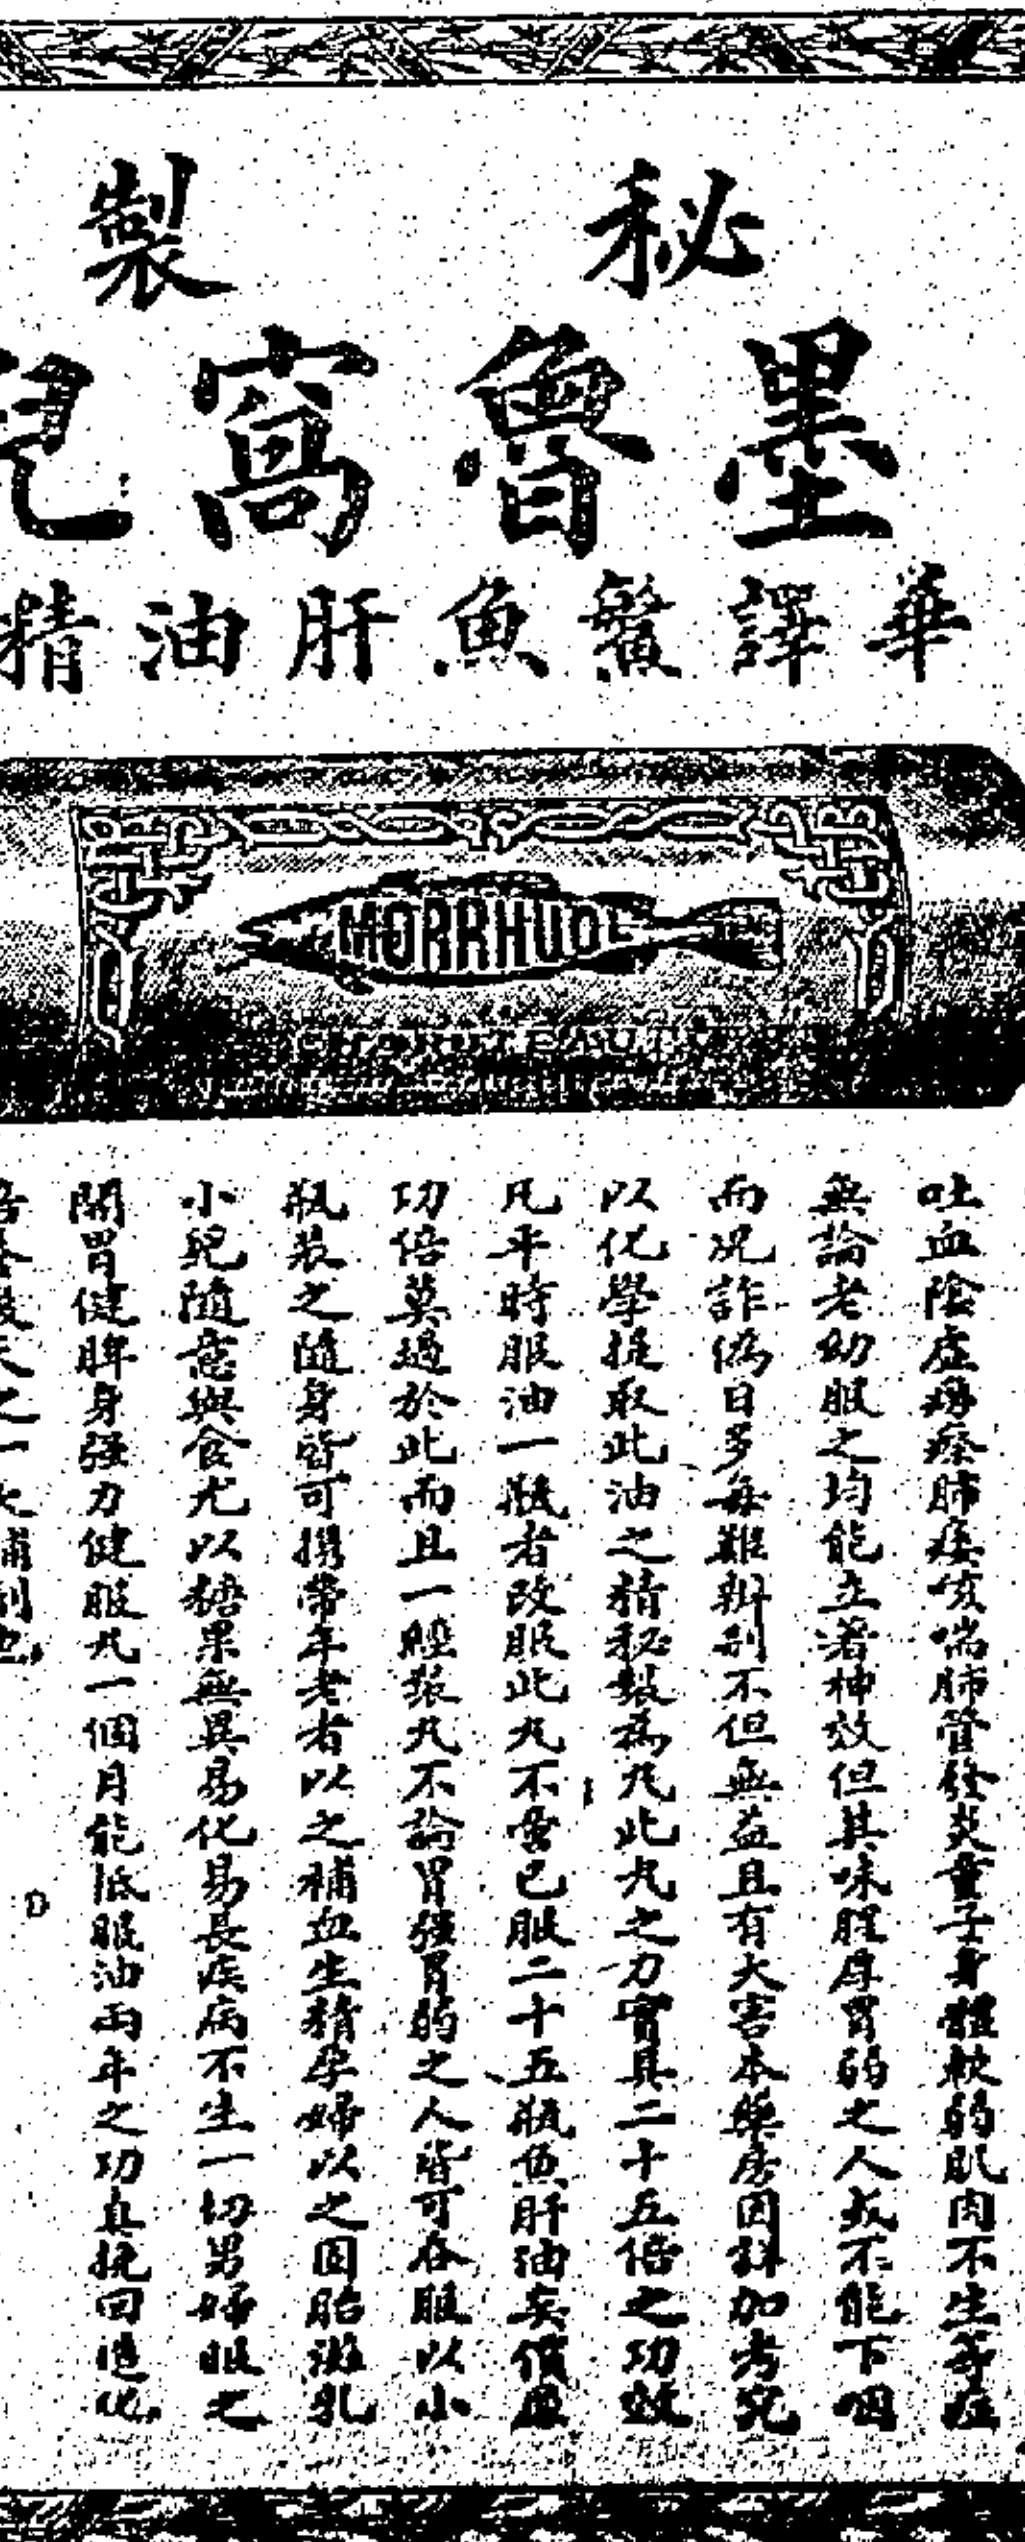 秘製
墨魯窩兒
華譯鱉魚肝油精
MORRHUOL
CHAPOTEAUT
吐血陰虛癆瘵肺痿咳喘肺管發炎童子身體軟弱肌肉不生等症
無論老幼服之均能立著神效但其味腥厚胃弱之人或不能下咽
而况詐偽日多每難辨别不但無益且有大害本藥房因詳加考究
以化學提取此油之精秘製為丸此丸之力實具二十五倍之功效
凡平時服油一瓶者改服此丸不啻已服二十五瓶魚肝油矣價廉
功倍莫過於此而且一經裝丸不論胃強胃弱之人皆可吞服以小
瓶裝之隨身皆可攜帶年老者以之補血生精孕婦以之固胎滋乳
小兒隨意與食尤以糖果無異易化易長疾病不生一切男婦服之
開胃健脾身强力健服丸一個月能抵服油兩年之功真挽回造化
之一大補劑也
D